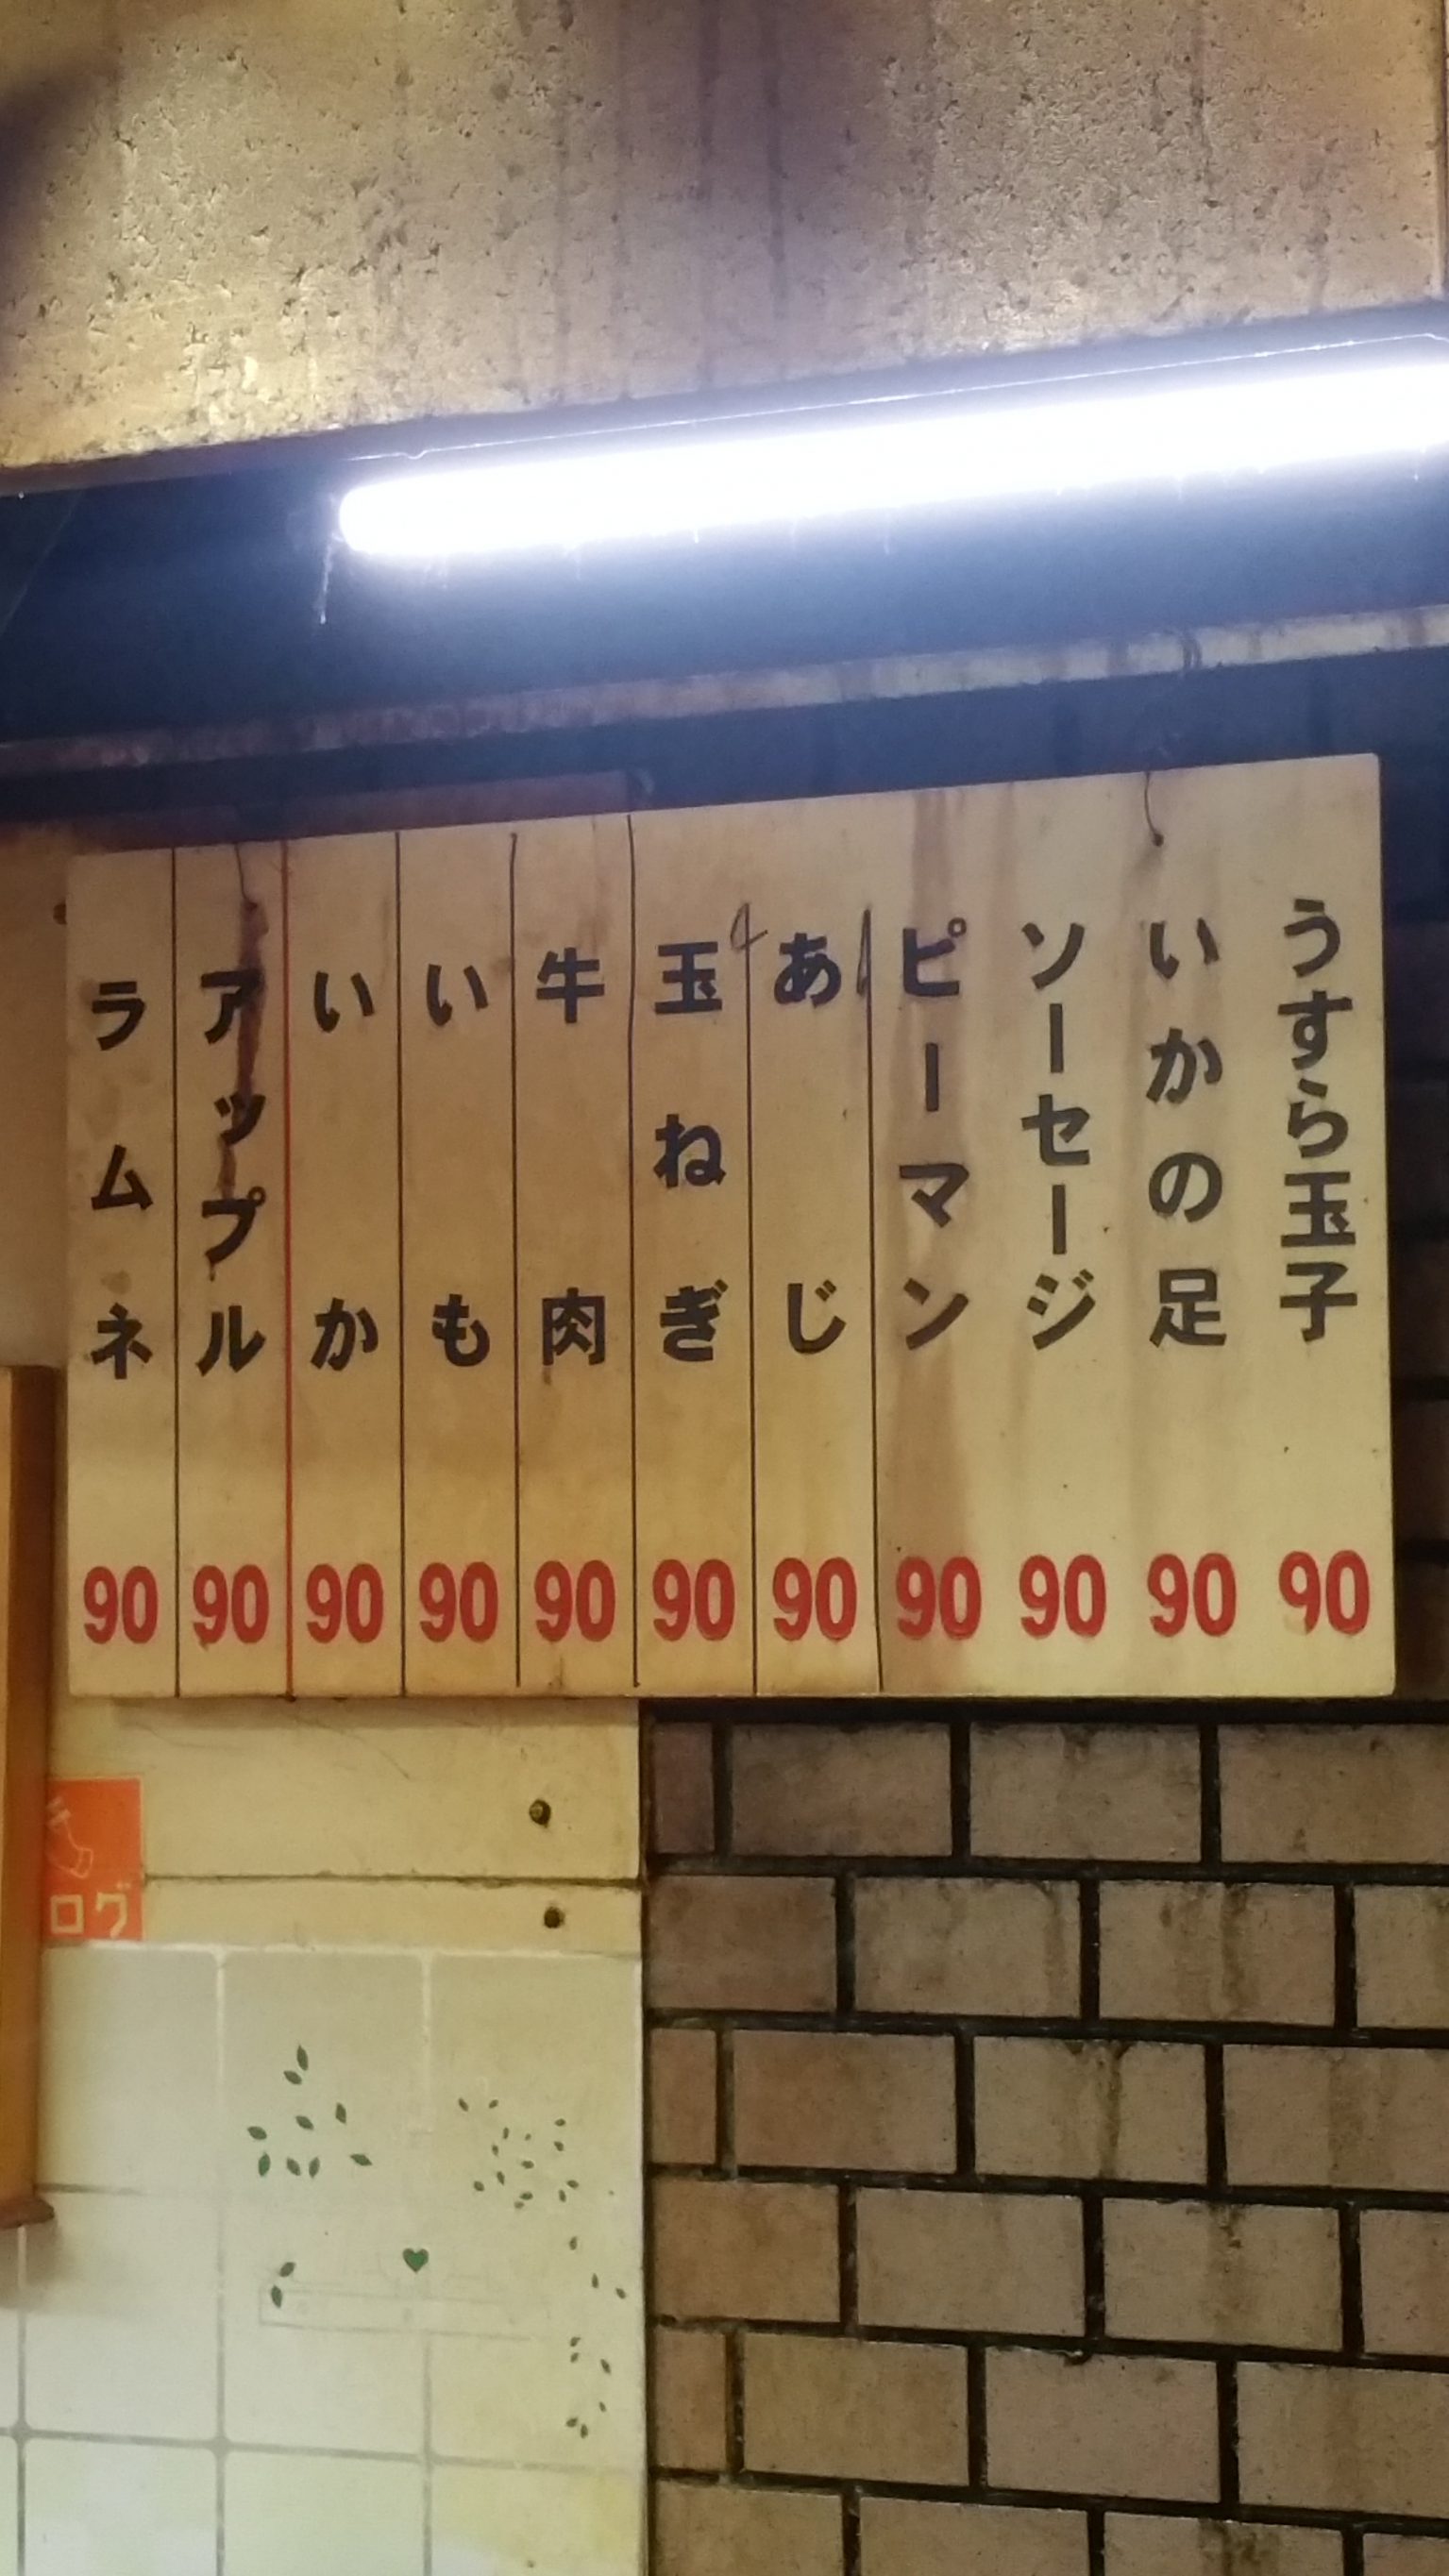 うすら玉子 90
いかの足 90
ソーセージ 90
ピーマン 90
あじ 90
玉ねぎ 90
牛肉 90
いも 90
いか 90
アップル 90
ラムネ 90
ログ